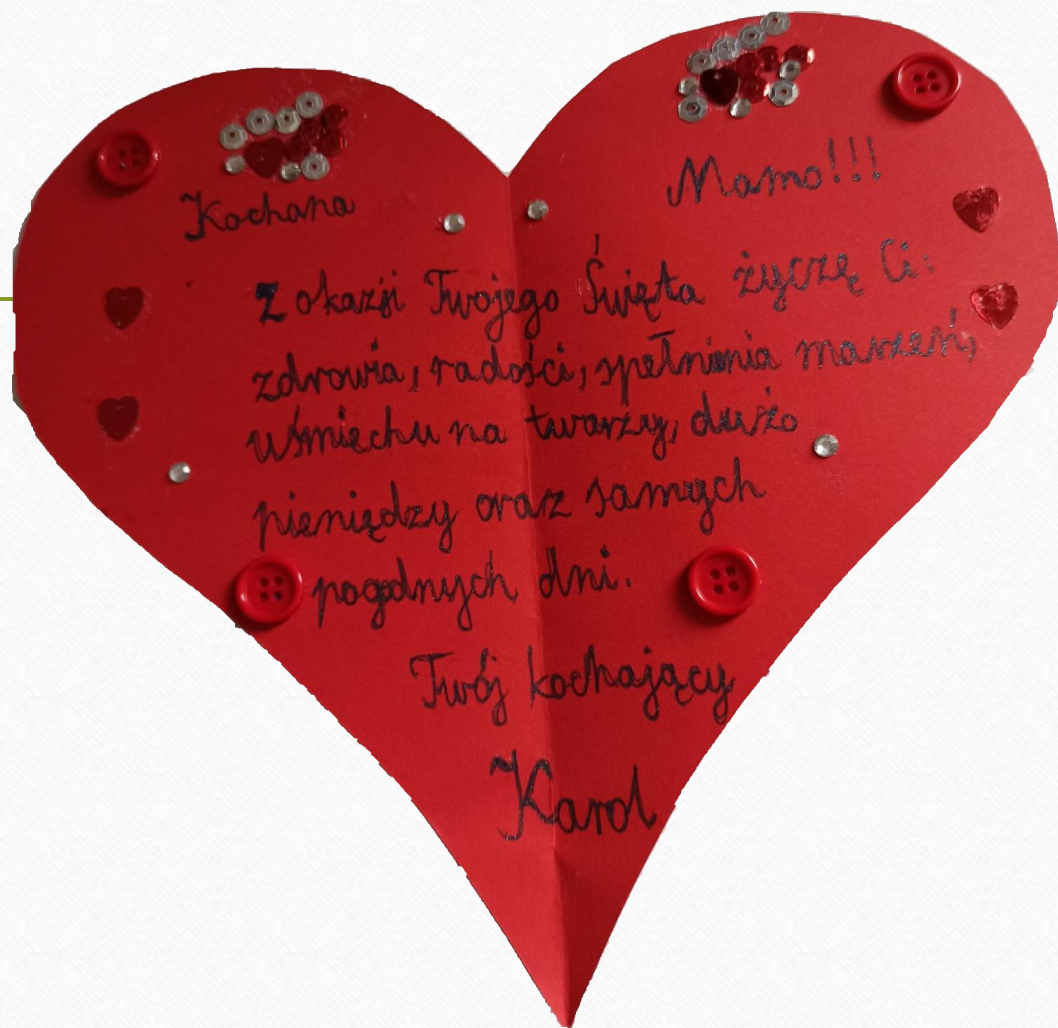 Kochana Mamo!!!
Z okazji Twojego Święta życzę Ci:
zdrowia, radości, spełnienia marzeń,
uśmiechu na twarzy, dużo
pieniędzy oraz samych
pogodnych dni.
Twój kochający
Karol